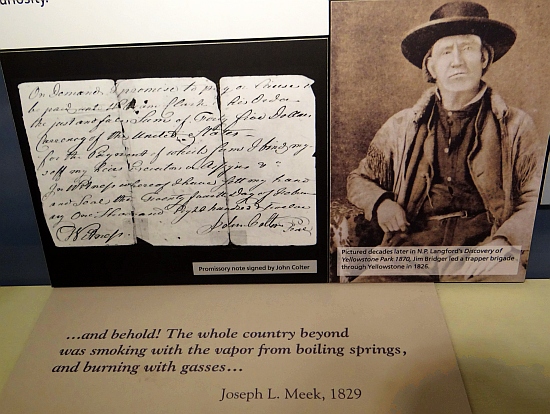 uriosity.
On Demand I promise to pay or Cause to
be paid unto William Clark his Order
the just and full Sum of Forty five Dollars
Currency of the United States
for the Payment of which Sum I bind my
self my heirs Executors Assigns &c
In Witness whereof I have Sett my hand
and Seal this Twenty day of
One thousand Eight hundred Twelve
Witness John Colter Seal
Promissory note signed by John Colter
Pictured decades later in N.P. Langford's Discovery of
Yellowstone Park 1870, Jim Bridger led a trapper brigade
through Yellowstone in 1826.
...and behold! The whole country beyond
was smoking with the vapor from boiling springs,
and burning with gasses...
Joseph L. Meek, 1829